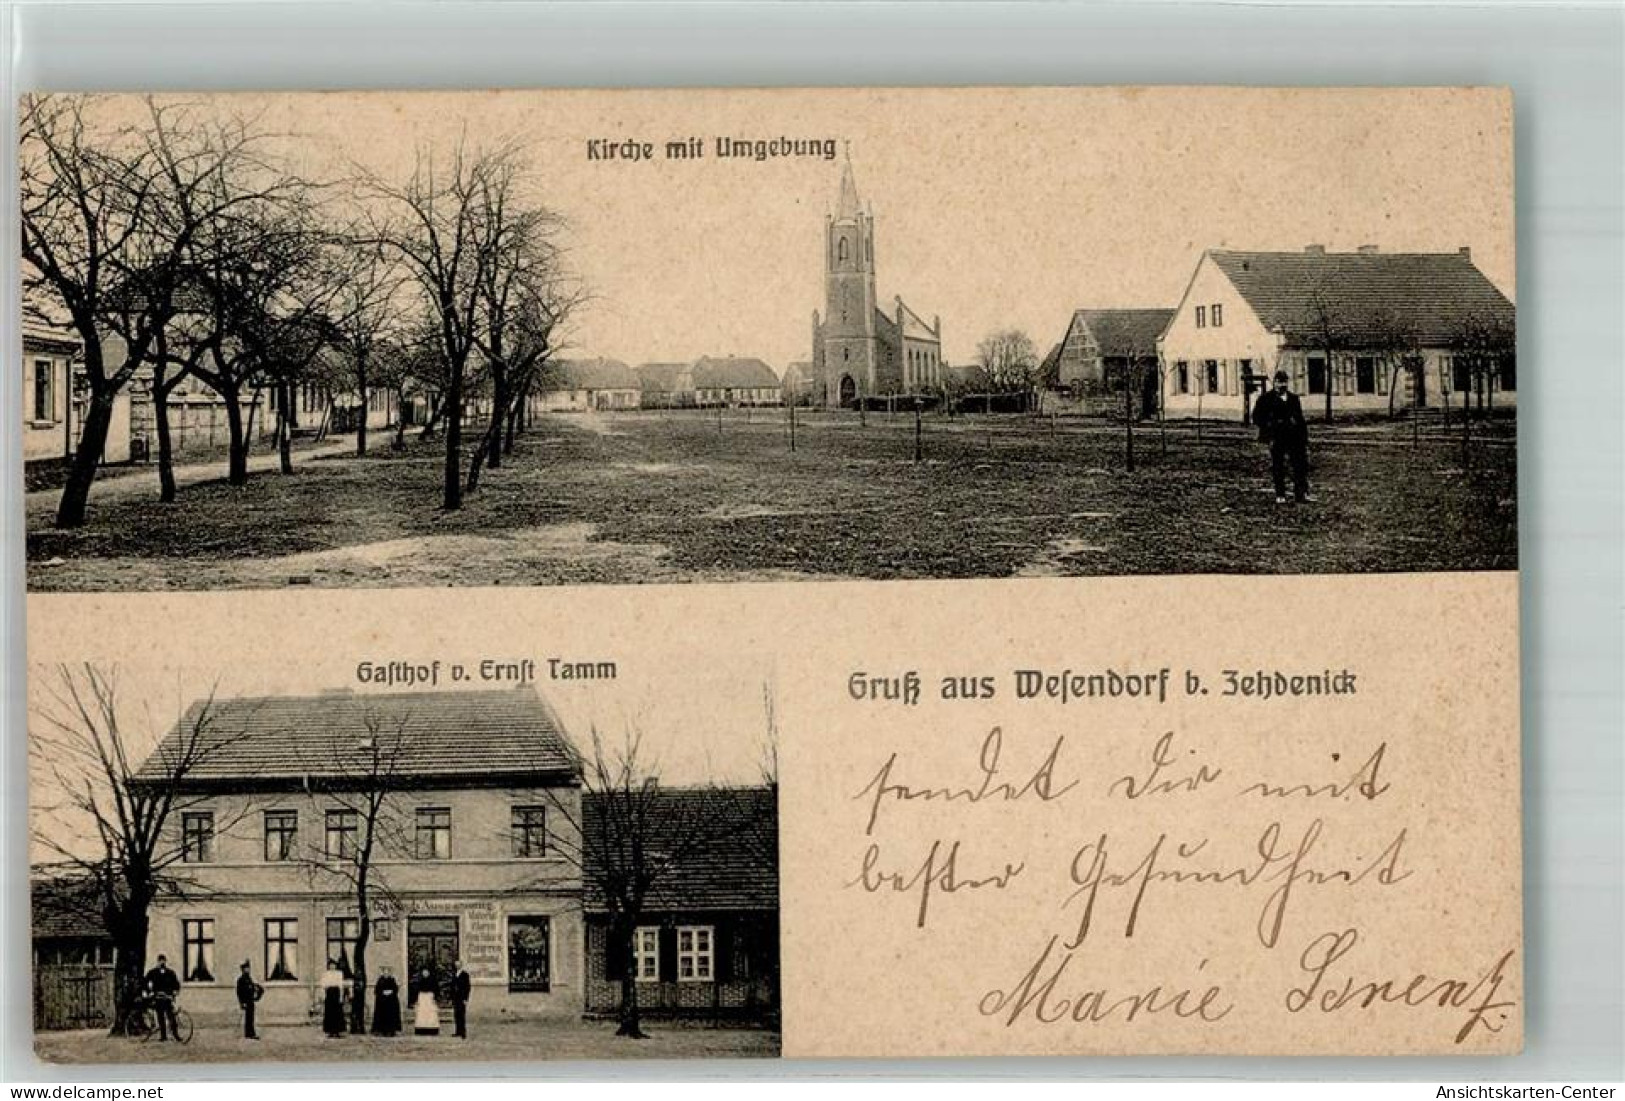 Kirche mit Umgebung
Gasthof v. Ernst Tamm
Gruß aus Wesendorf b. Zehdenick
sendet Dir mit
bester Gesundheit
Marie Lorenz.
Ansichtskarten-Center